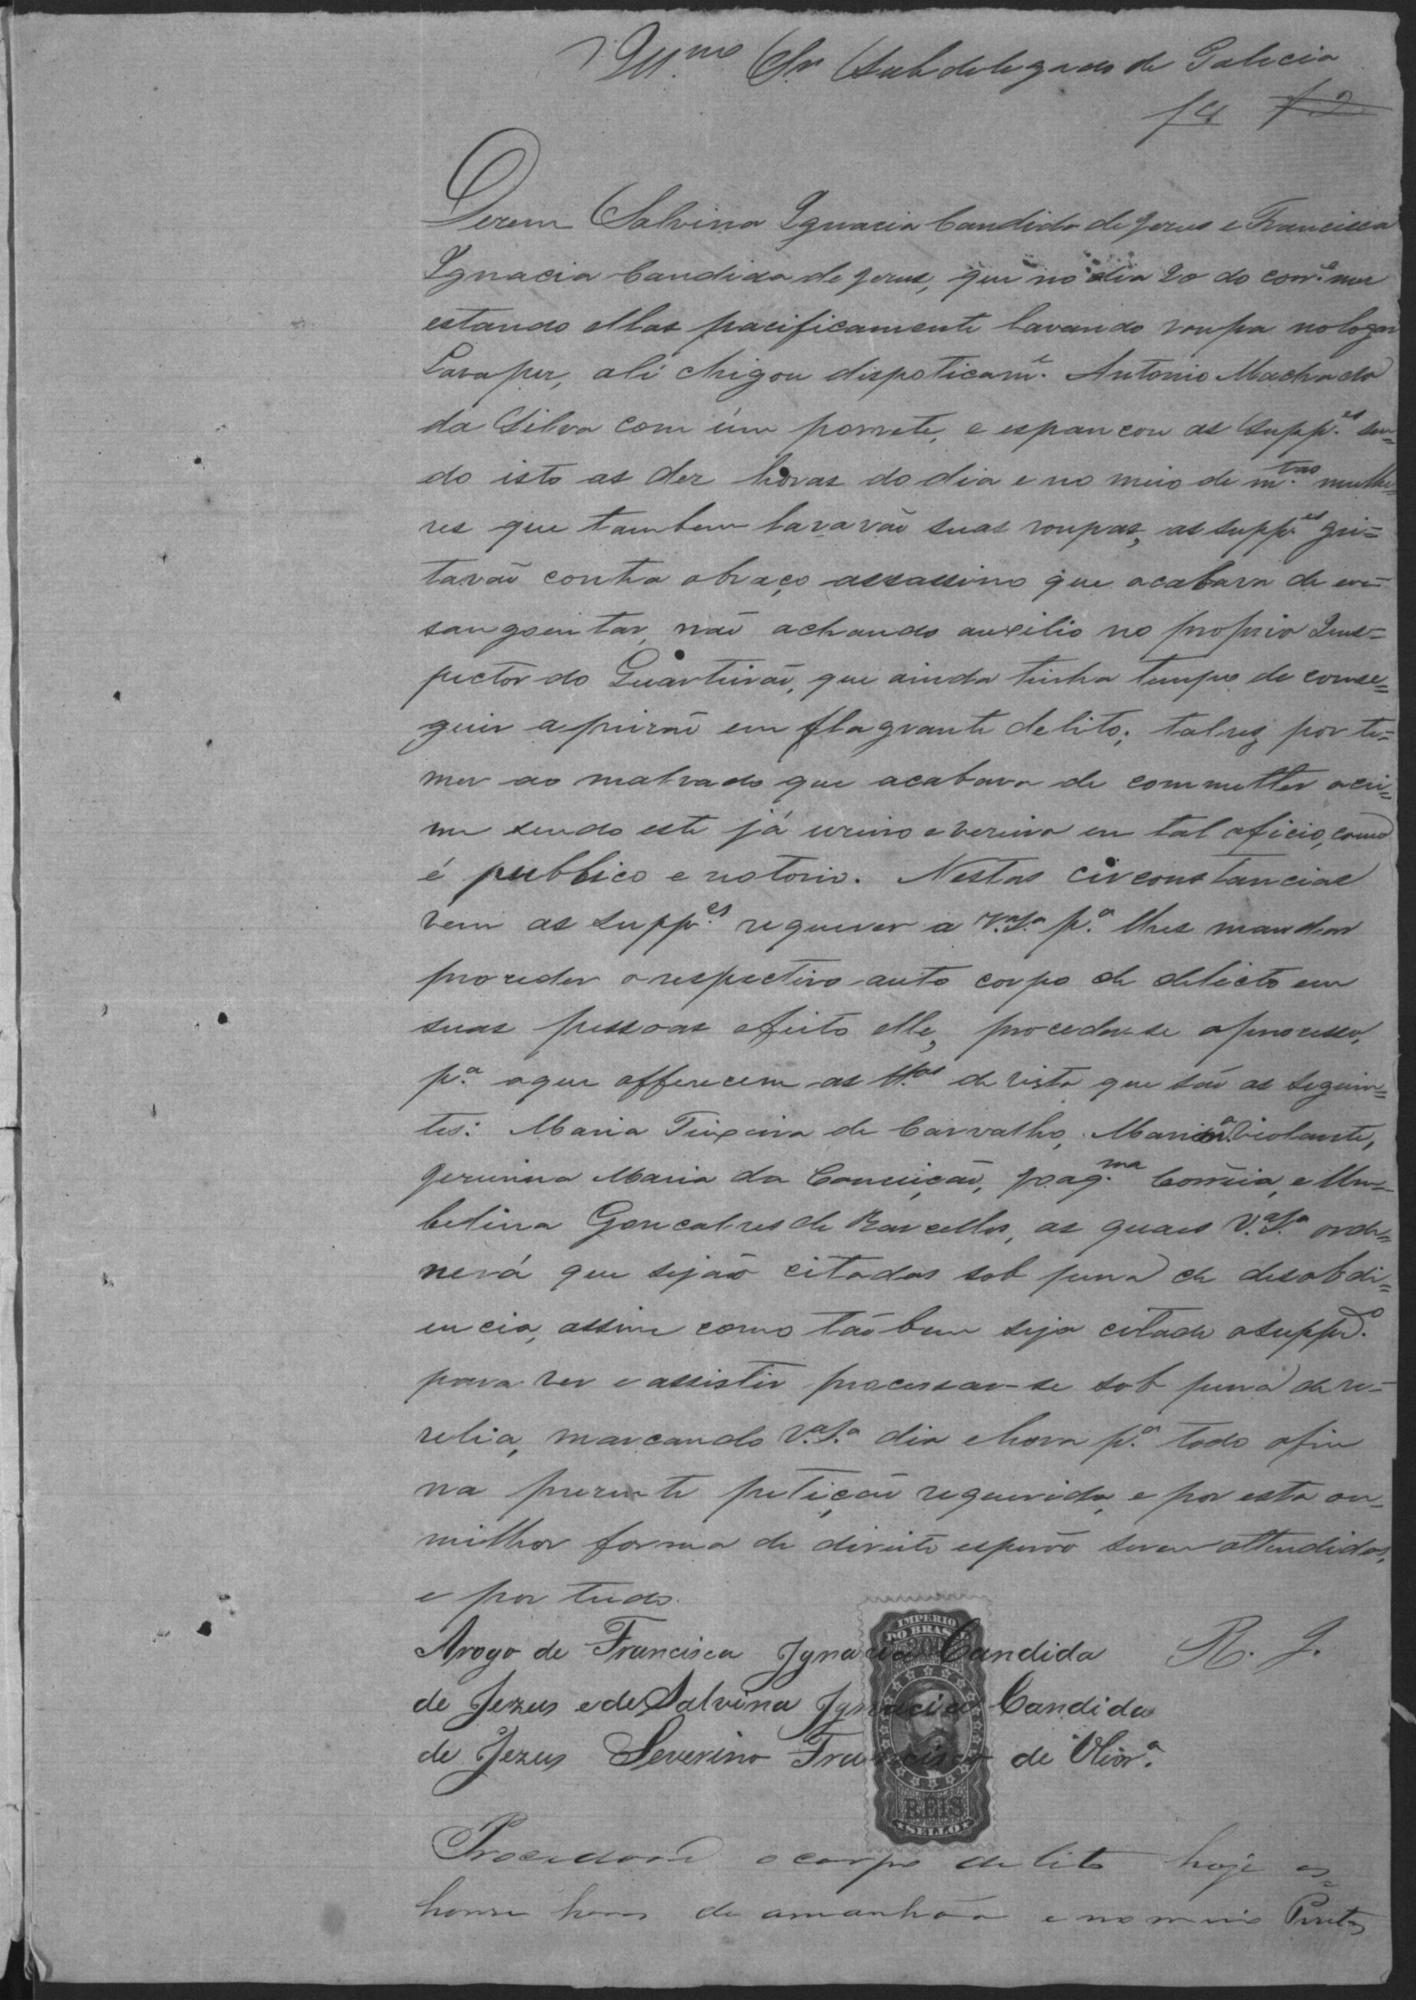 Ill.mo Sr Subdelegado de Policia
f4 f2
Dizem Salvina Ignacia Candida de Jezus e Francisca
Ignacia Candida de Jezus, que no dia 20 do corr.e mez
estando ellas pacificamente lavando roupa no logar
Lavapez, ali chigou dispoticam.e Antonio Machado
da Silva com úm porrete, e espancou as Supp.es sen=
do isto as dez horas do dia e no meio de m.tas mulhe=
res que tambem lavavão suas roupas, as supp.es gri=
tavão contra o braço assassino que acabava de en=
sangoentar, não achando auxilio no proprio Ins=
pector do Quarteirão, que ainda tinha tempo de conse=
guir a prizão em flagrante delito; talvez por te=
mer ao malvado que acabava de commetter o cri=
me sendo este já uzeiro e vezeiro em tal oficio, como
é publico e notorio. Nestas circonstancias
vem as Supp.es requerer a V.a S.a p.a lhes mandar
proceder o respectivo auto corpo de delicto em
suas pessoas e feito elle, proceda-se o processo,
p.a o que offerecem as tt.as de vista que são as seguin=
tes: Maria Teixeira de Carvalho, Maria Violante,
Jeruina Maria da Conceição, Joaq.ma Corrêia, e Um=
belina Goncalves de Barcellos, as quaes V.a S.a orde=
nerá que sejão citadas sob pena de desobedi=
encia, assim como tãobem seja citado o supp.do
para ver e assistir processar-se sob pena de re=
velia, marcando V.a S.a dia e hora p.a todo o fim
na prezente petição requerida, e por esta ou
milhor forma de direito esperão serem attendidas,
e por tudo
R. J.
Arogo de Francisca Ignacia Candida
de Jezus e de Salvina Ignacia Candida
de Jezus Severino Francisco de Olivr.a
IMPERIO
DO BRASIL
200
REIS
SELLO
Procedase o corpo delito hoje as
horas de amanhãa e nomeio Peritos